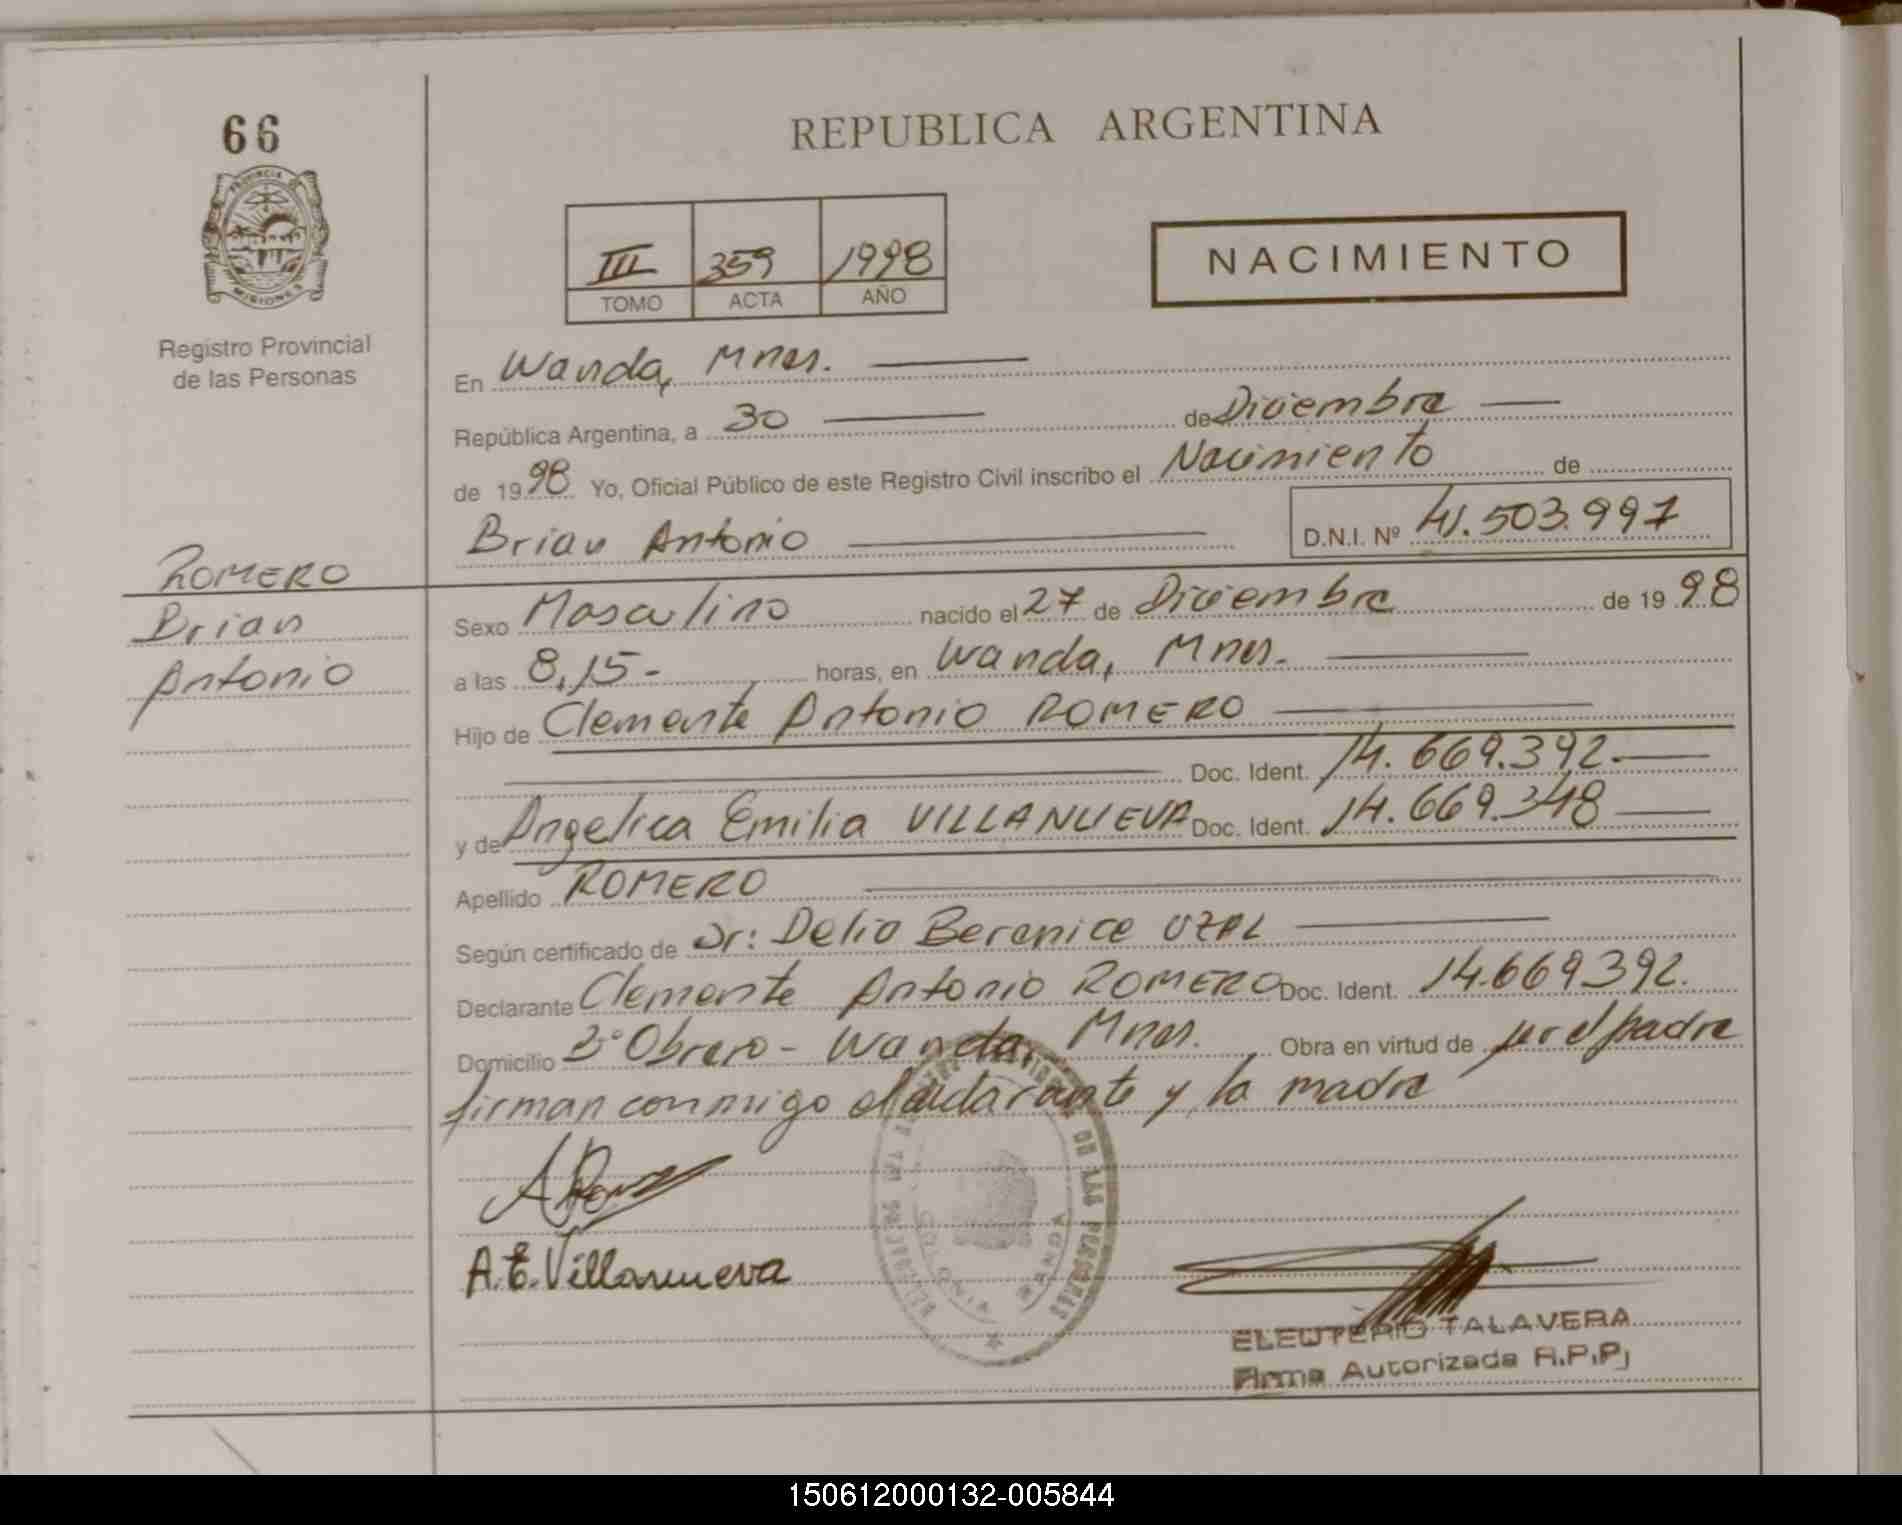 66
PROVINCIA DE
MISIONES
Registro Provincial
de las Personas
ROMERO
Brian
Antonio
REPUBLICA ARGENTINA
III 359 1998
TOMO ACTA AÑO
NACIMIENTO
En Wanda, Mnes.
República Argentina, a 30 de Diciembre
de 1998 Yo, Oficial Público de este Registro Civil inscribo el Nacimiento de
Brian Antonio D.N.I. Nº 41.503.997
Sexo Masculino nacido el 27 de Diciembre de 1998
a las 8,15- horas, en Wanda, Mnes.
Hijo de Clemente Antonio ROMERO
Doc. Ident. 14.669.392.
y de Angelica Emilia VILLANUEVA Doc. Ident. 14.669.348
Apellido ROMERO
Según certificado de Dr: Delio Berenice UZAL
Declarante Clemente Antonio ROMERO Doc. Ident. 14.669392.
Domicilio Bº Obrero - Wanda, Mnes. Obra en virtud de ser el padre
firman conmigo el declarante y la madre
A.E. Villanueva
DE LAS PERSONAS
COLONIA
ELEUTERIO TALAVERA
Firma Autorizada R.P.P.
150612000132-005844